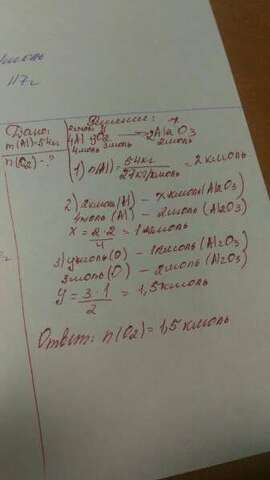 117г
Дано:
m(Al)=54кг
n(O₂)-?
Решение:
2кмоль y x
4Al+3O₂ → 2Al₂O₃
4моль 3моль 2моль
1) n(Al)= 54кг / 27кг/кмоль = 2кмоль
2) 2кмоль(Al) - x кмоль(Al₂O₃)
4моль(Al) - 2моль(Al₂O₃)
x = 2·2 / 4 = 1кмоль
3) y моль(O) - 1кмоль(Al₂O₃)
3моль(O) - 2моль(Al₂O₃)
y = 3·1 / 2 = 1,5кмоль
Ответ: n(O₂)=1,5кмоль